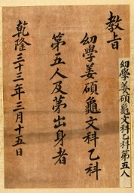 教旨
幼學姜碩龜文科乙科
第五人及第出身者
乾隆三十三年三月十五日
幼學姜碩龜文科乙科第五人